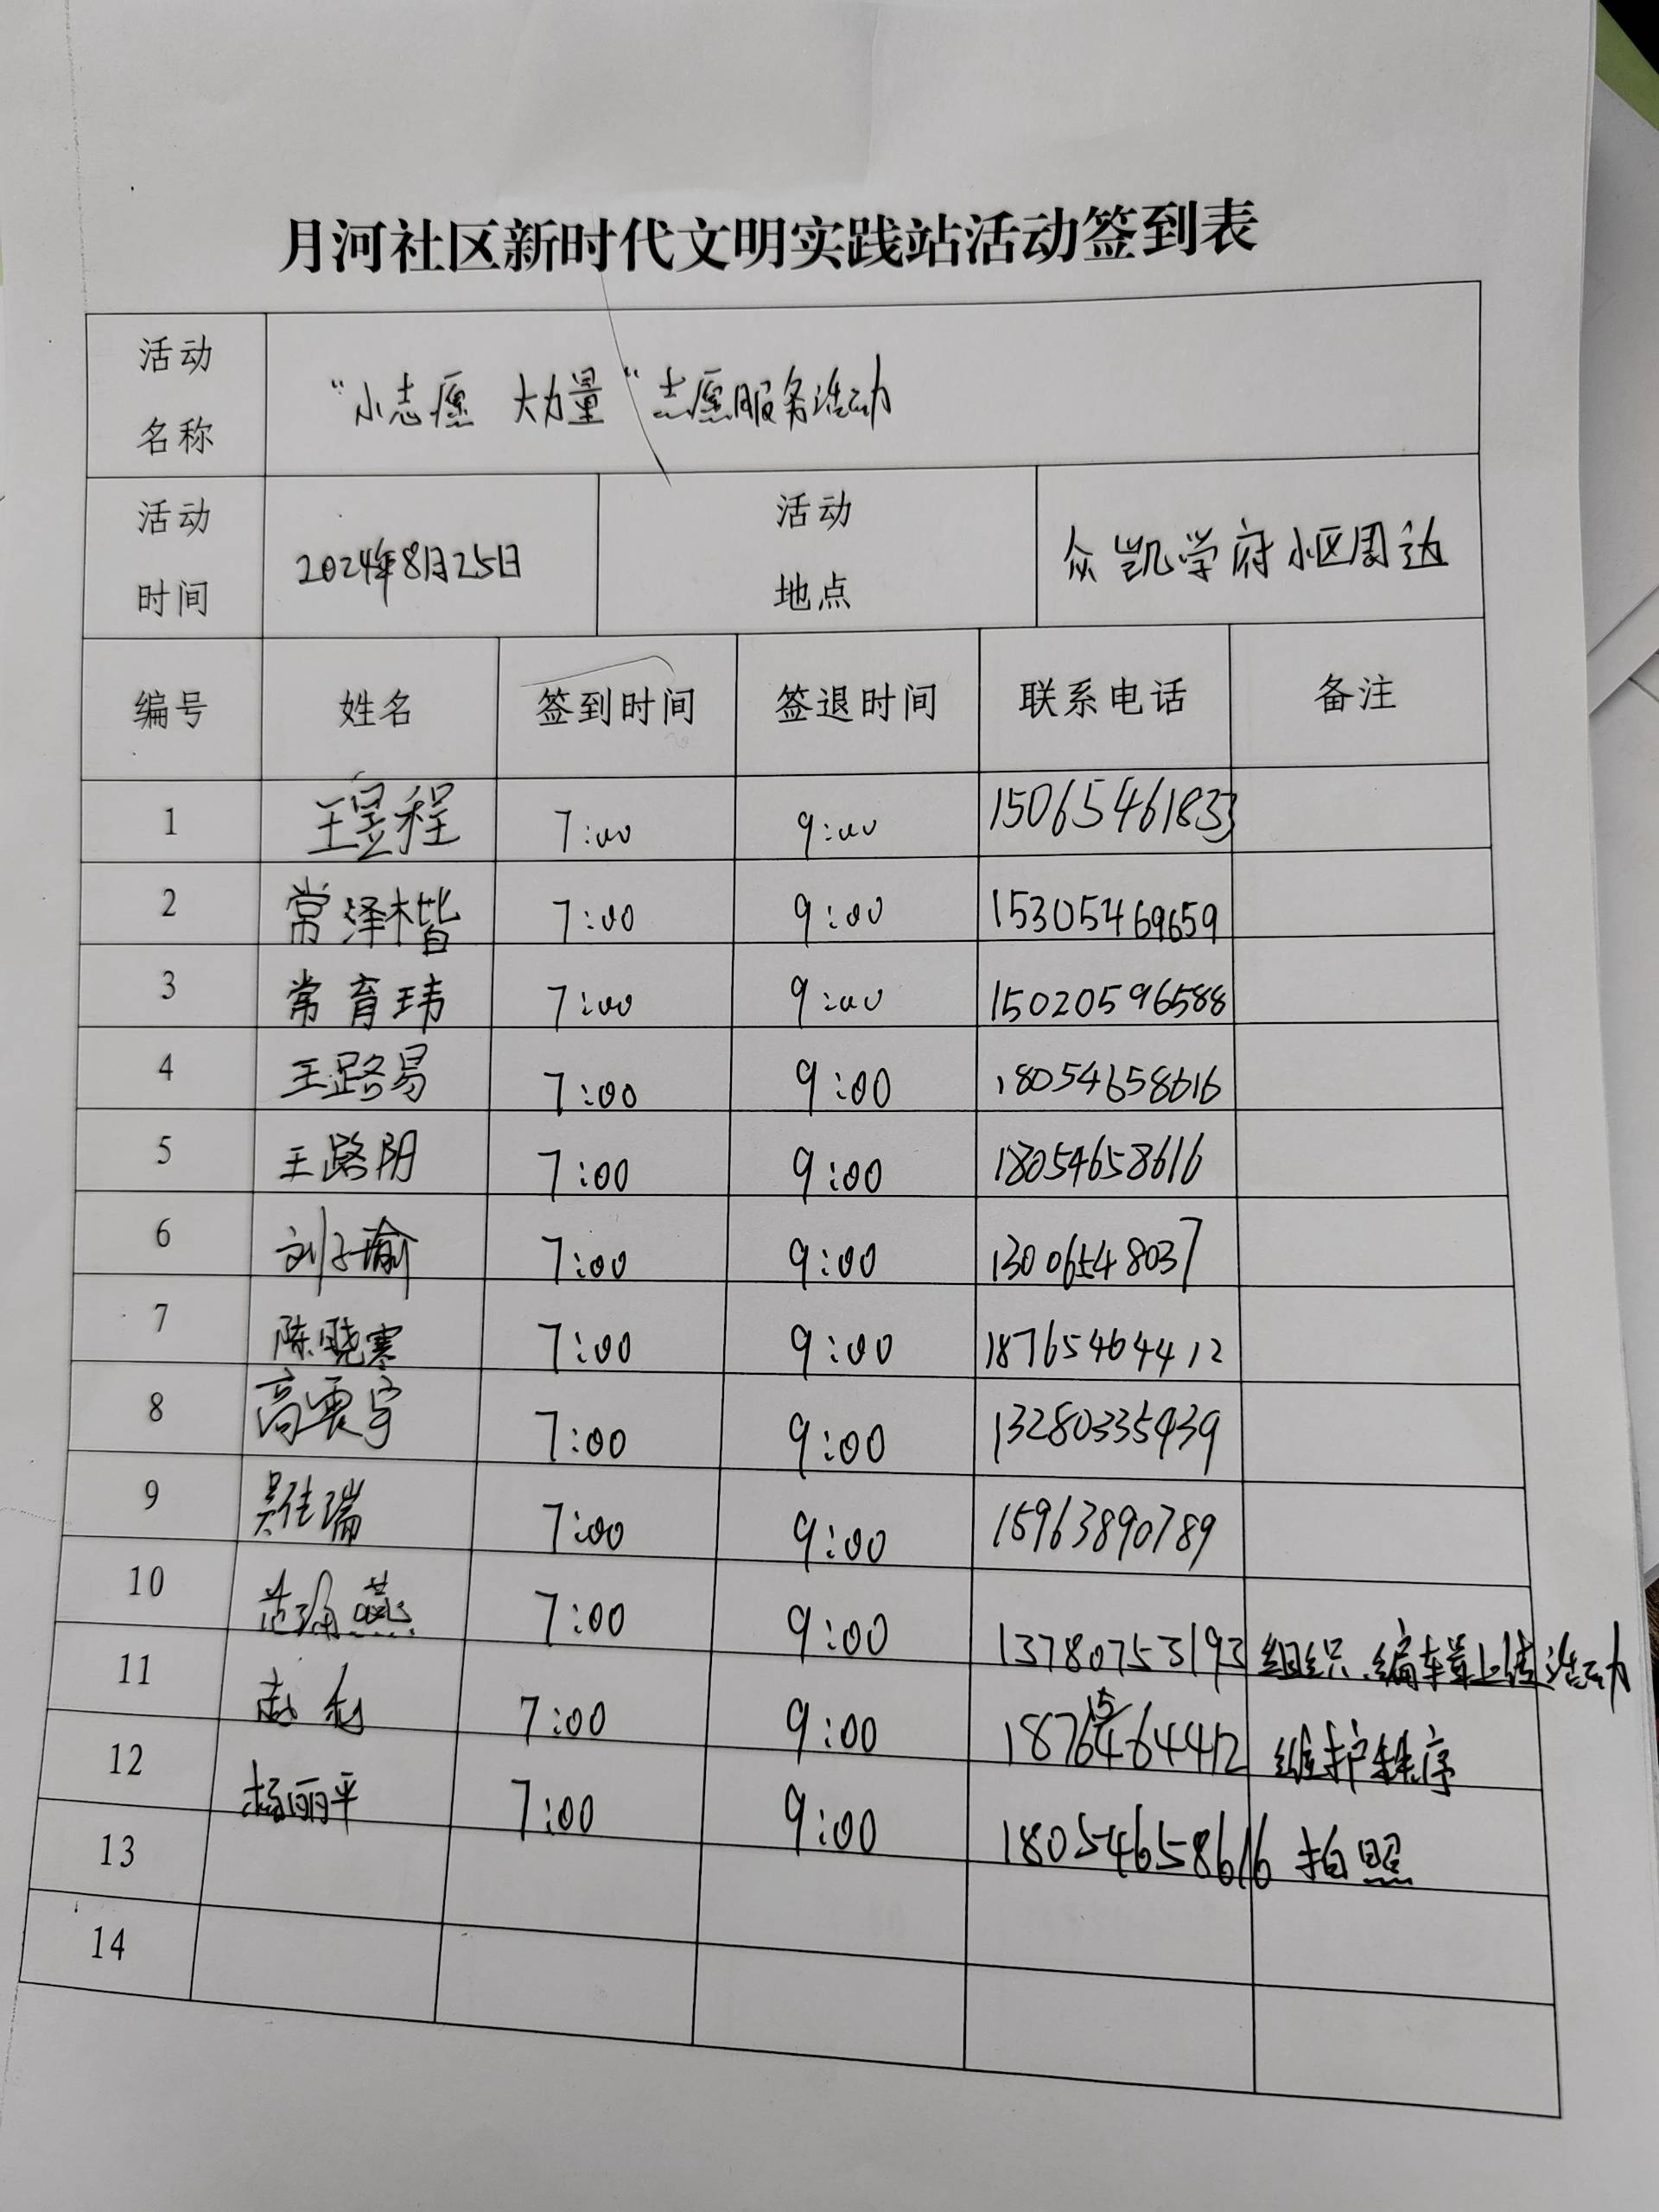 月河社区新时代文明实践站活动签到表
活动名称 “小志愿 大力量“志愿服务活动
活动时间 2024年8月25日 活动地点 众凯学府小区周边
编号 姓名 签到时间 签退时间 联系电话 备注
1 王昱程 7:00 9:00 15065461833
2 常泽楷 7:00 9:00 15305469659
3 常育玮 7:00 9:00 15020596588
4 王路易 7:00 9:00 18054658616
5 王路阴 7:00 9:00 18054658616
6 刘子瑜 7:00 9:00 13006548037
7 陈晓寒 7:00 9:00 18765464412
8 高震宇 7:00 9:00 13280335939
9 吴佳瑞 7:00 9:00 15963890789
10 范海燕 7:00 9:00 13780753193 组织、编辑上传活动
11 赵 7:00 9:00 18765464412 维护秩序
12 杨丽平 7:00 9:00 18054658616 拍照
13
14